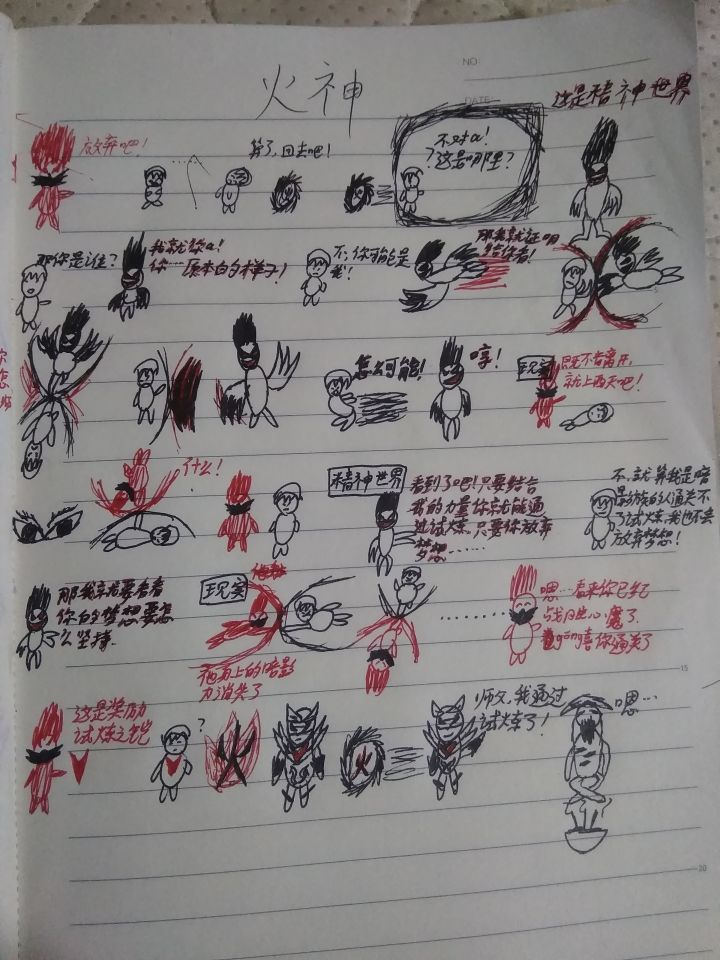 NO:
DATE:
火神
这是精神世界
放弃吧!
……
算了,回去吧!
不对a!
这是哪里?
那你是谁?
我就是你a!
你……原本白的样子!
不,你不可能是
我!
那我就证明
给你看!
怎么可能!
哼!
现实
既不肯离开,
就上西天吧!
什么!
精神世界
看到了吧!只要结合
我的力量你就能通
过试炼,只要你放弃
梦想……
不,就算我是暗
影族的人通关不
了试炼,我也不会
放弃梦想!
那我就要看看
你的梦想要怎
么坚持.
现实
他身上的暗影
力消失了
……
嗯…看来你已经
战胜心魔了.
gōng喜你通关了
15
这是奖励
试炼之铠
?
火
火
师父,我通过
试炼了!
嗯…
20